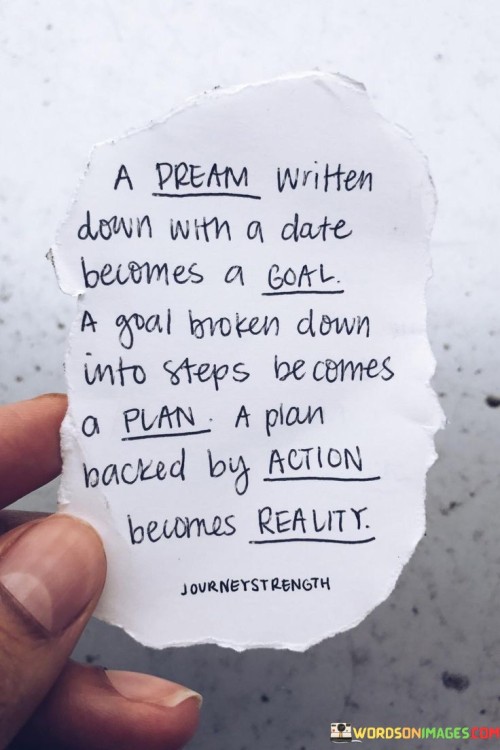 A DREAM written
down with a date
becomes a GOAL.
A goal broken down
into steps becomes
a PLAN. A plan
backed by ACTION
becomes REALITY.
JOURNEYSTRENGTH
WORDSONIMAGES.COM